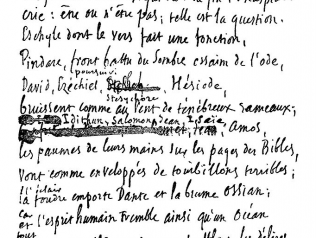 crie : être ou n'être pas ; telle est la question.
Eschyle dont le vers fait une fonction,
Pindare, front battu du sombre essaim de l'ode,
poursuivi
David, Ezéchiel, Hésiode,
Stésychore
bruissent comme au vent de ténébreux rameaux ;
Idithun, Salomon, Jean, Isaïe
Amos,
les paumes de leurs mains sur les pages des Bibles,
Vont comme enveloppés de tourbillons terribles ;
l'éclair
la foudre emporte Dante et la brume Ossian ;
et l'esprit humain tremble ainsi qu'un Océan
tous